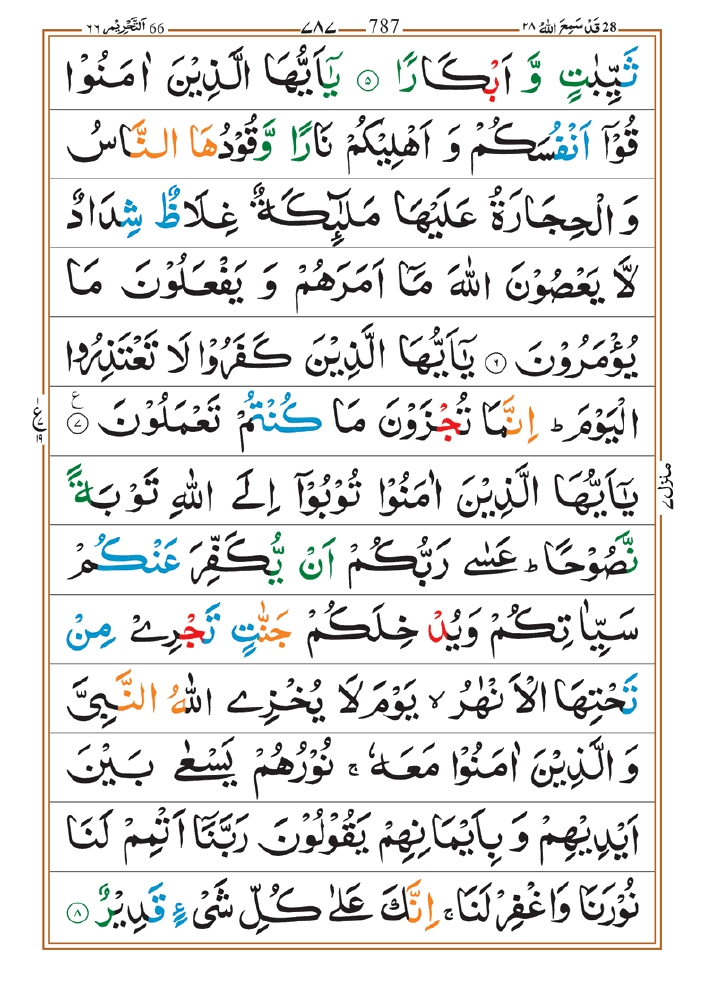 28 قَدۡ سَمِعَ اللّٰهُ ٢٨ 787 ٧٨٧ 66 اَلتَّحۡرِيۡم ٦٦
ثَيِّبٰتٍ وَّ اَبۡكَارًا ۝٥ يٰۤاَيُّهَا الَّذِيۡنَ اٰمَنُوۡا
قُوۡۤا اَنۡفُسَكُمۡ وَ اَهۡلِيۡكُمۡ نَارًا وَّقُوۡدُهَا النَّاسُ
وَ الۡحِجَارَةُ عَلَيۡهَا مَلٰٓئِكَةٌ غِلَاظٌ شِدَادٌ
لَّا يَعۡصُوۡنَ اللّٰهَ مَاۤ اَمَرَهُمۡ وَ يَفۡعَلُوۡنَ مَا
يُؤۡمَرُوۡنَ ۝٦ يٰۤاَيُّهَا الَّذِيۡنَ كَفَرُوۡا لَا تَعۡتَذِرُوا
الۡيَوۡمَ ؕ اِنَّمَا تُجۡزَوۡنَ مَا كُنۡتُمۡ تَعۡمَلُوۡنَ ۝٧ ع
ع ٧ ١٩
يٰۤاَيُّهَا الَّذِيۡنَ اٰمَنُوۡا تُوۡبُوۡۤا اِلَى اللّٰهِ تَوۡبَةً
منزل ٧
نَّصُوۡحًا ؕ عَسٰى رَبُّكُمۡ اَنۡ يُّكَفِّرَ عَنۡكُمۡ
سَيِّاٰتِكُمۡ وَيُدۡخِلَكُمۡ جَنّٰتٍ تَجۡرِىۡ مِنۡ
تَحۡتِهَا الۡاَنۡهٰرُ ۙ يَوۡمَ لَا يُخۡزِى اللّٰهُ النَّبِىَّ
وَ الَّذِيۡنَ اٰمَنُوۡا مَعَهٗ ۚ نُوۡرُهُمۡ يَسۡعٰى بَيۡنَ
اَيۡدِيۡهِمۡ وَ بِاَيۡمَانِهِمۡ يَقُوۡلُوۡنَ رَبَّنَاۤ اَتۡمِمۡ لَنَا
نُوۡرَنَا وَاغۡفِرۡ لَنَا ۚ اِنَّكَ عَلٰى كُلِّ شَىۡءٍ قَدِيۡرٌ ۝٨